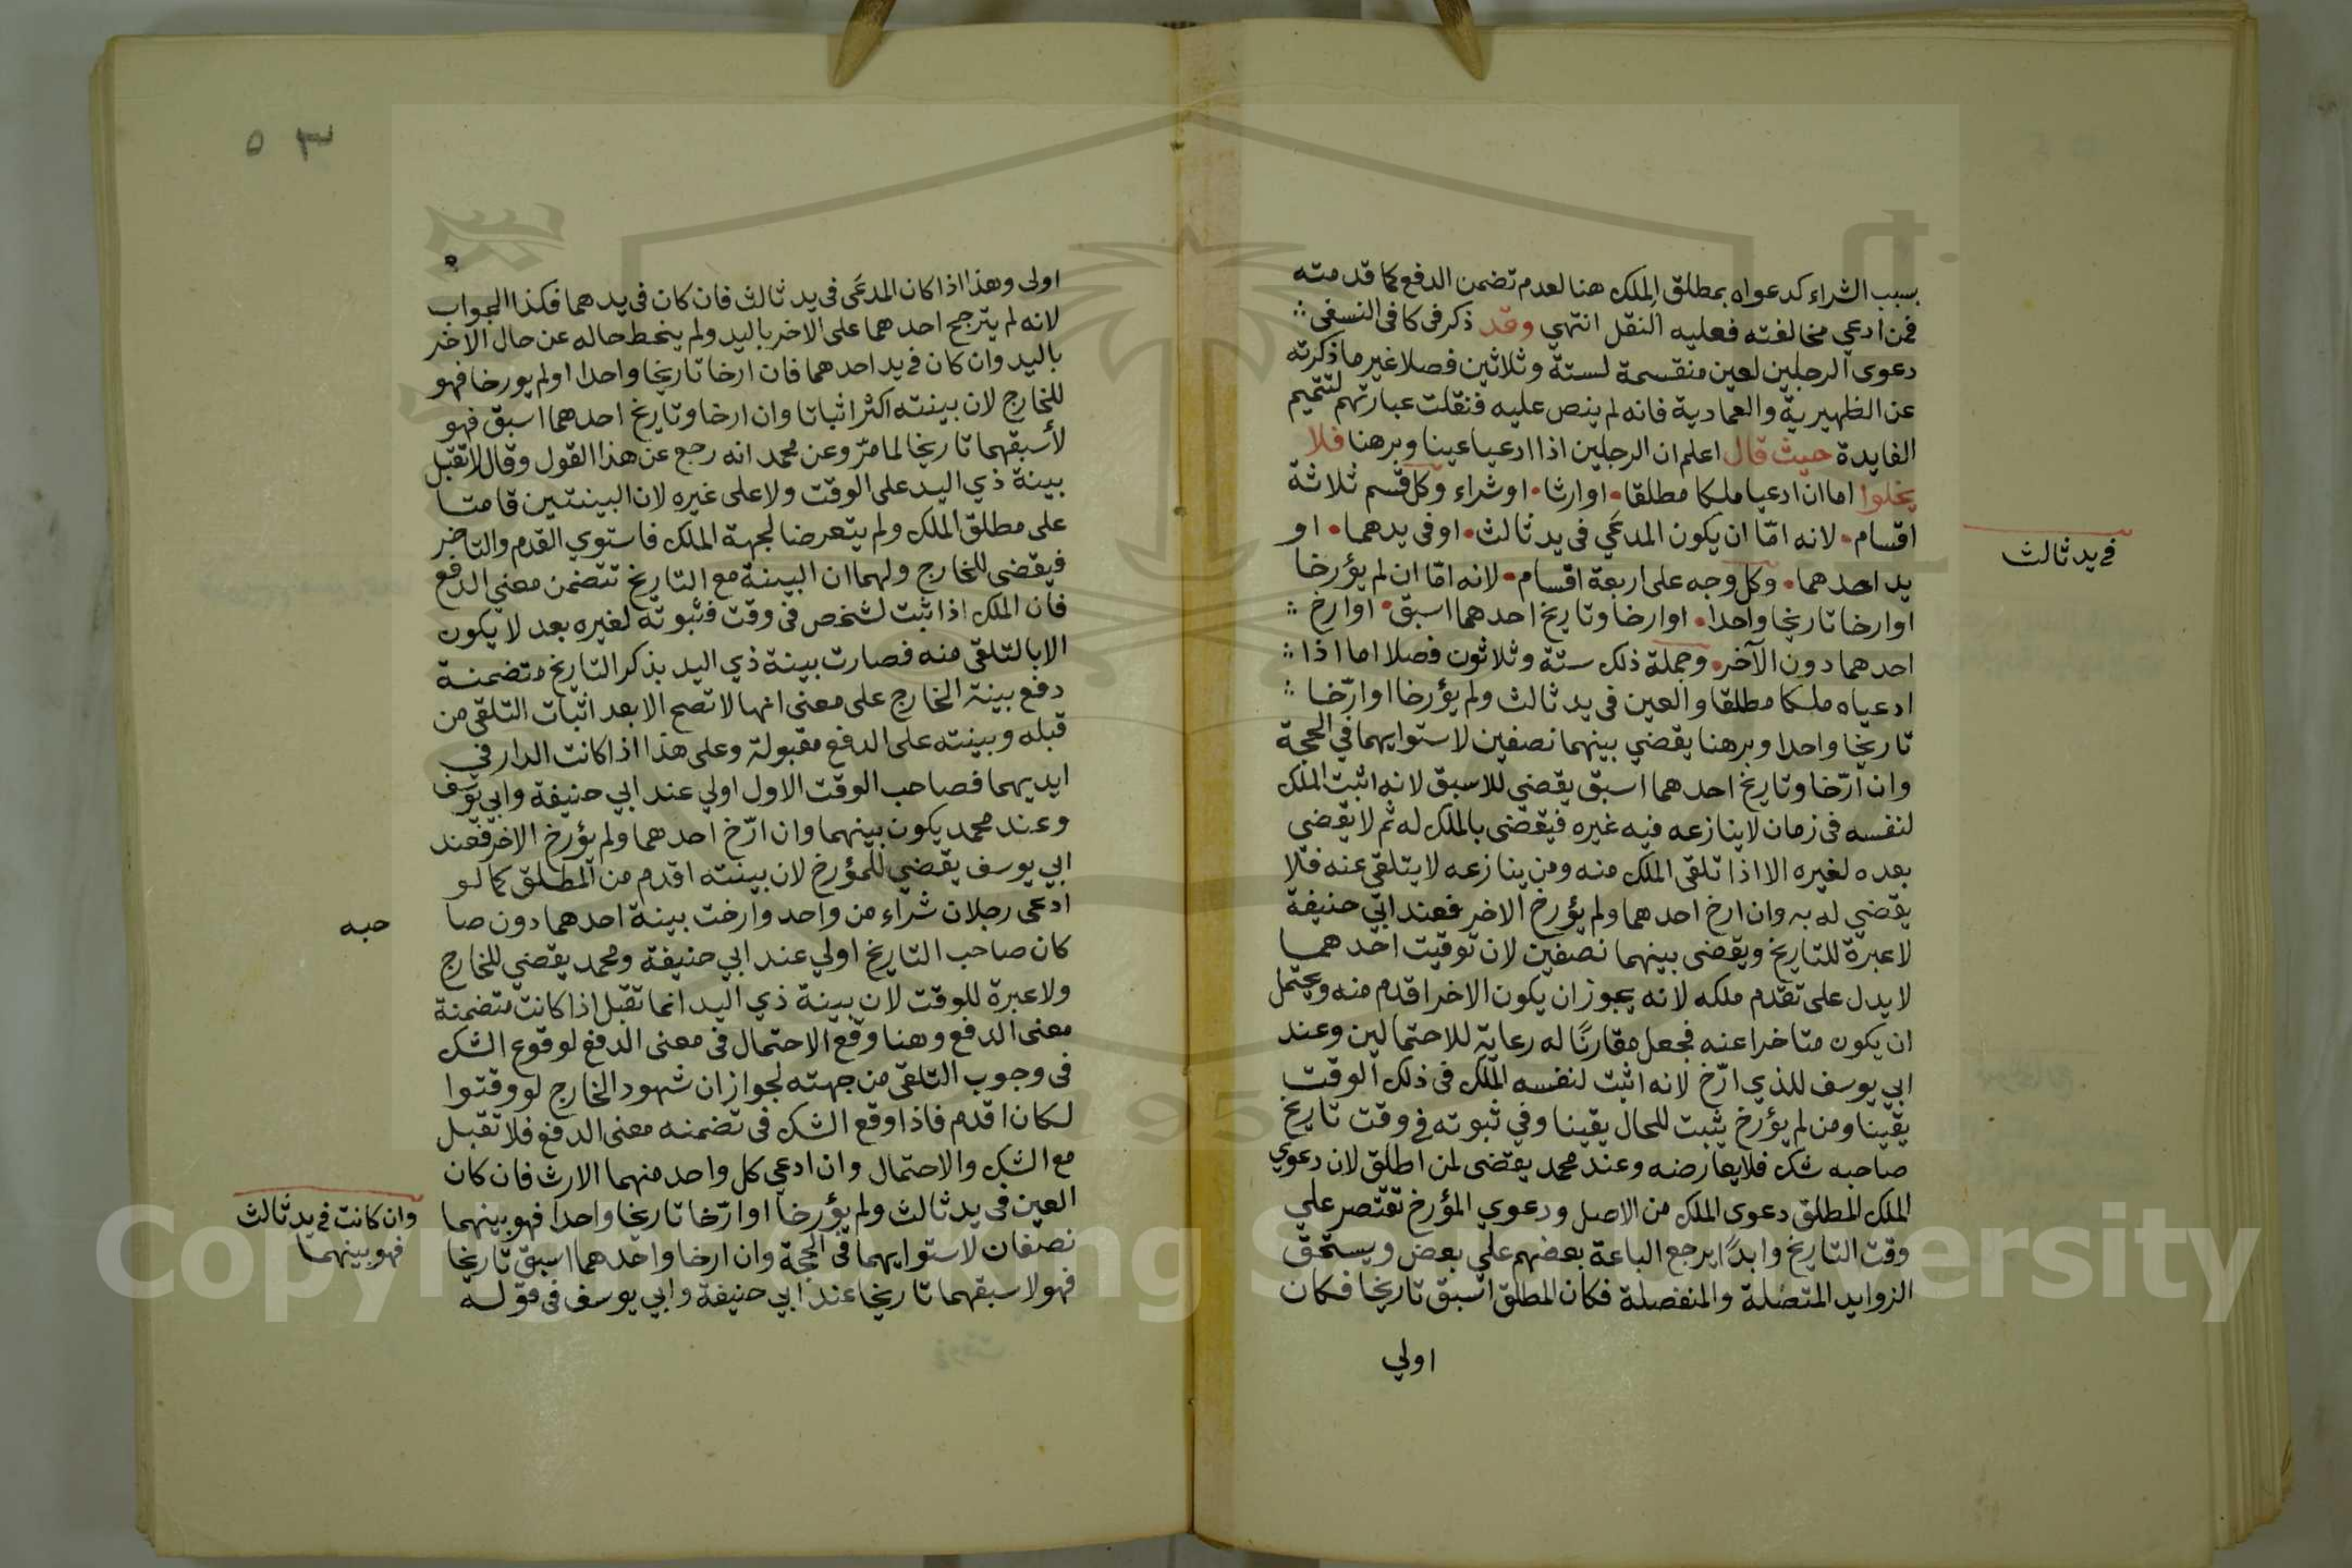 بسبب الشراء كدعواه بمطلق الملك هنا لعدم تضمن الدفع كما قدمته
فمن ادعي مخالفته فعليه النقل انتهي وقد ذكر في كافي النسفي
دعوى الرجلين لعين منقسمة لستة وثلاثين فصلا غير ما ذكرته
عن الظهيرية والعمادية فانه لم ينص عليه فنقلت عبارتهم لتتميم
الفايدة حيث قال اعلم ان الرجلين اذا ادعيا عينا وبرهنا فلا
يخلوا اما ان ادعيا ملكا مطلقا او ارثا او شراء وكل قسم ثلاثة
اقسام لانه امّا ان يكون المدعَي في يد ثالث او في يدهما او
في يد ثالث
يد احدهما وكل وجه على اربعة اقسام لانه امّا ان لم يؤرخا
او ارخا تاريخا واحدا او ارخا وتاريخ احدهما اسبق او ارخ
احدهما دون الآخر وجملة ذلك ستة وثلاثون فصلا اما اذا
ادعياه ملكا مطلقا والعين في يد ثالث ولم يؤرخا او ارّخا
تاريخا واحدا وبرهنا يقضي بينهما نصفين لاستوايهما في الحجة
وان ارّخا وتاريخ احدهما اسبق يقضي للاسبق لانه اثبت الملك
لنفسه في زمان لا ينازعه فيه غيره فيقضى بالملك له ثم لا يقضي
بعده لغيره الا اذا تلقى الملك منه ومن ينازعه لا يتلقى عنه فلا
يقضي له به وان ارخ احدهما ولم يؤرخ الاخر فعند ابي حنيفة
لا عبرة للتاريخ ويقضى بينهما نصفين لان توقيت احدهما
لا يدل على تقدم ملكه لانه يجوز ان يكون الاخر اقدم منه ويحتمل
ان يكون متاخرا عنه فجعل مقارنًا له رعاية للاحتمالين وعند
ابي يوسف للذي ارّخ لانه اثبت لنفسه الملك في ذلك الوقت
يقينا ومن لم يؤرخ يثبت للحال يقينا وفي ثبوته في وقت تاريخ
صاحبه شك فلا يعارضه وعند محمد يقضى لمن اطلق لان دعوي
الملك المطلق دعوى الملك من الاصل ودعوي المؤرخ تقتصر علي
وقت التاريخ وابدًا يرجع الباعة بعضهم علي بعض ويستحق
الزوايد المتصلة والمنفصلة فكان المطلق اسبق تاريخا فكان
اولي
٥٣
اولى وهذا اذا كان المدعَى في يد ثالث فان كان في يدهما فكذا الجواب
لانه لم يترجح احدهما على الاخر باليد ولم ينحط حاله عن حال الاخر
باليد وان كان في يد احدهما فان ارخا تاريخا واحدا او لم يورخا فهو
للخارج لان بينته اكثر اثباتا وان ارخا وتاريخ احدهما اسبق فهو
لأسبقهما تاريخا لما مرّ وعن محمد انه رجع عن هذا القول وقال لا تقبل
بينة ذي اليد على الوقت ولا على غيره لان البينتين قامتا
على مطلق الملك ولم يتعرضا لجهة الملك فاستوي القدم والتاخر
فيقضى للخارج ولهما ان البينة مع التاريخ تتضمن معني الدفع
فان الملك اذا ثبت لشخص في وقت فثبوته لغيره بعد لا يكون
الا بالتلقى منه فصارت بينة ذي اليد بذكر التاريخ متضمنة
دفع بينة الخارج على معنى انها لا تصح الا بعد اثبات التلقي من
قبله وبينته على الدفع مقبولة وعلى هذا اذا كانت الدار في
ايديهما فصاحب الوقت الاول اولي عند ابي حنيفة وابي يوسف
وعند محمد يكون بينهما وان ارّخ احدهما ولم يؤرخ الاخر فعند
ابي يوسف يقضي للمؤرخ لان بينته اقدم من المطلق كما لو
ادعى رجلان شراء من واحد وارخت بينة احدهما دون صا
حبه
كان صاحب التاريخ اولي عند ابي حنيفة ومحمد يقضي للخارج
ولا عبرة للوقت لان بينة ذي اليد انما تقبل اذا كانت متضمنة
معنى الدفع وهنا وقع الاحتمال في معنى الدفع لوقوع الشك
في وجوب التلقى من جهته لجواز ان شهود الخارج لو وقتوا
لكان اقدم فاذا وقع الشك في تضمنه معنى الدفع فلا تقبل
مع الشك والاحتمال وان ادعي كل واحد منهما الارث فان كان
العين في يد ثالث ولم يؤرخا او ارّخا تاريخا واحدا فهو بينهما
وان كانت في يد ثالث
فهو بينهما
نصفان لاستوايهما في الحجة وان ارخا واحدهما اسبق تاريخا
فهو لاسبقهما تاريخا عند ابي حنيفة وابي يوسف في قوله